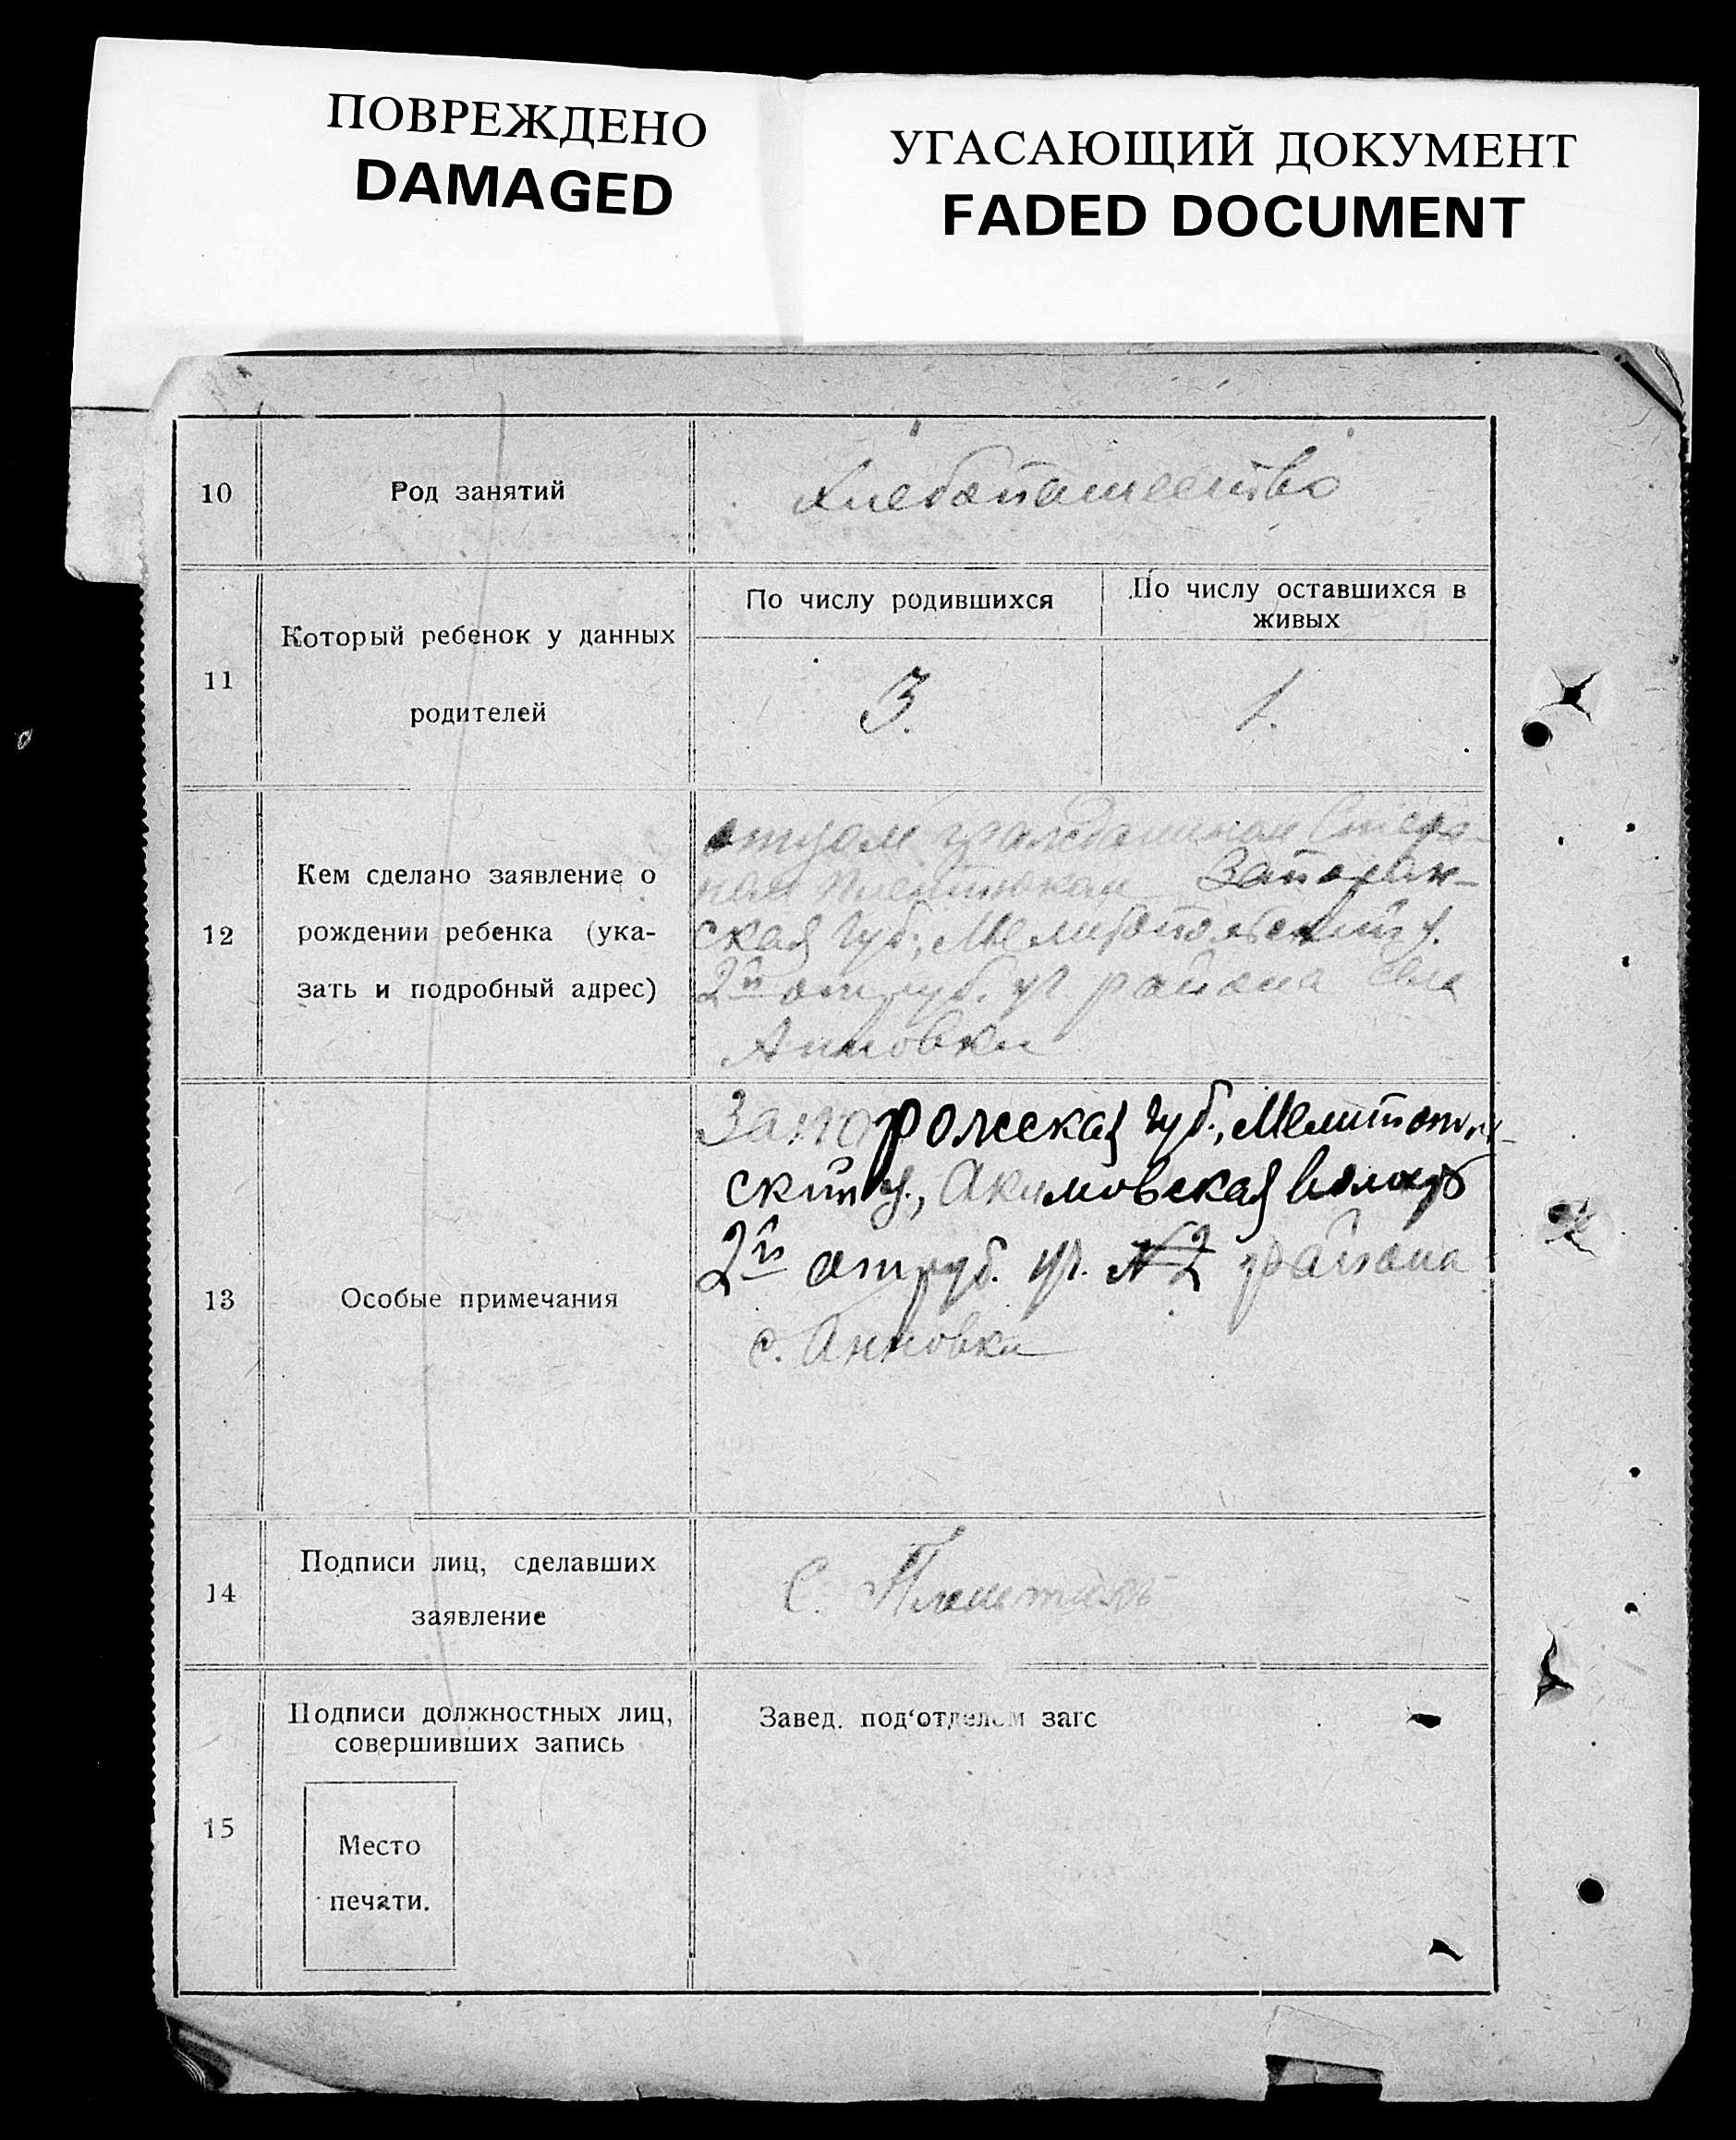 ПОВРЕЖДЕНО
DAMAGED
УГАСАЮЩИЙ ДОКУМЕНТ
FADED DOCUMENT
10
Род занятий
Хлебопашество
11
Который ребенок у данных
родителей
По числу родившихся
По числу оставшихся в
живых
3.
1.
12
Кем сделано заявление о
рождении ребенка (ука-
зать и подробный адрес)
отцом гражданином
Запорож-
ская губ., Мелитопольский у.
2й отруб. уч. района села
Анновки
13
Особые примечания
Запорожская губ., Мелитополь-
ский у., Акимовская волость
2й отруб. уч. №2 района
с. Анновки
14
Подписи лиц, сделавших
заявление
С.
15
Подписи должностных лиц,
совершивших запись
Место
печати.
Завед. под‘отделом загс